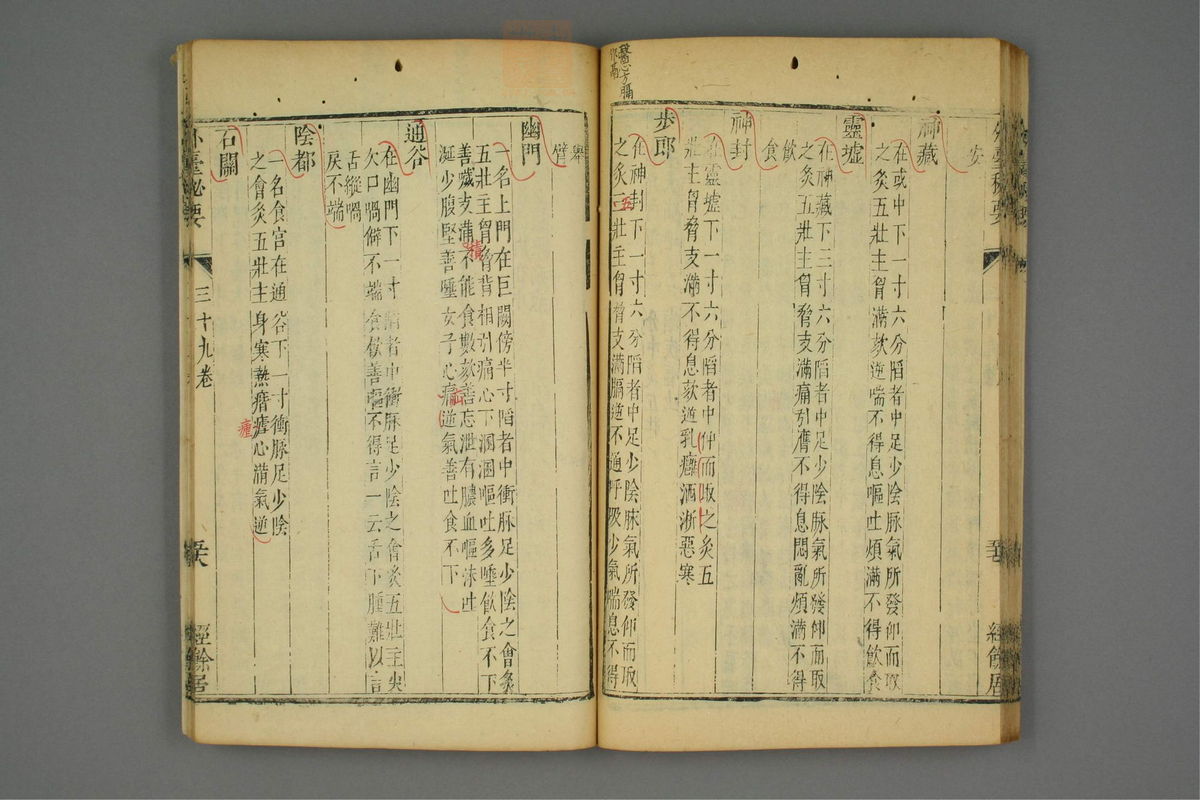 醫心方膈
安
神藏
在或中下一寸六分陷者中足少陰脉氣所發仰而取
之灸五壯主胷滿欬逆喘不得息嘔吐煩滿不得飲食
靈墟
在神藏下三寸六分陷者中足少陰脉氣所發仰而取
之灸五壯主胷脅支滿痛引膺不得息悶亂煩滿不得
飲
食
神封
在靈墟下一寸六分陷者中仰而取之灸五
壯主胷脅支滿不得息欬逆乳癰洒淅惡寒
步郎
在神封下一寸六分陷者中足少陰脉氣所發仰而取
之灸三壯主胷脅支滿膈逆不通呼吸少氣喘息不得
五
舉
臂
幽門
一名上門在巨闕傍半寸陷者中衝脉足少陰之會灸
五壯主胷脅背相引痛心下溷溷嘔吐多唾飲食不下
善噦支滿不能食數欬善忘泄有膿血嘔沫吐
涎少腹堅善唾女子心痛逆氣善吐食不下
積
通谷
在幽門下一寸陷者中衝脉足少陰之會灸五壯主失
欠口喎僻不端食飲善嘔不得言一云舌下腫難以言
舌縱喎
戾不端
陰都
一名食宮在通谷下一寸衝脉足少陰
之會灸五壯主身寒熱瘧心滿氣逆
瘧
石關
外臺祕要
三十九卷
經餘居